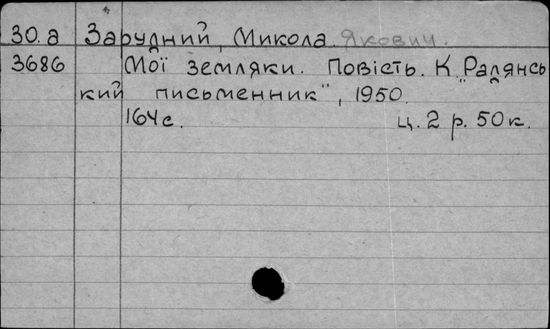 30.а Зарудний, Микола Якович.
3686 Мої земляки. Повість. К. "Радянсь
кий письменник", 1950.
164с. ц. 2 р. 50к.